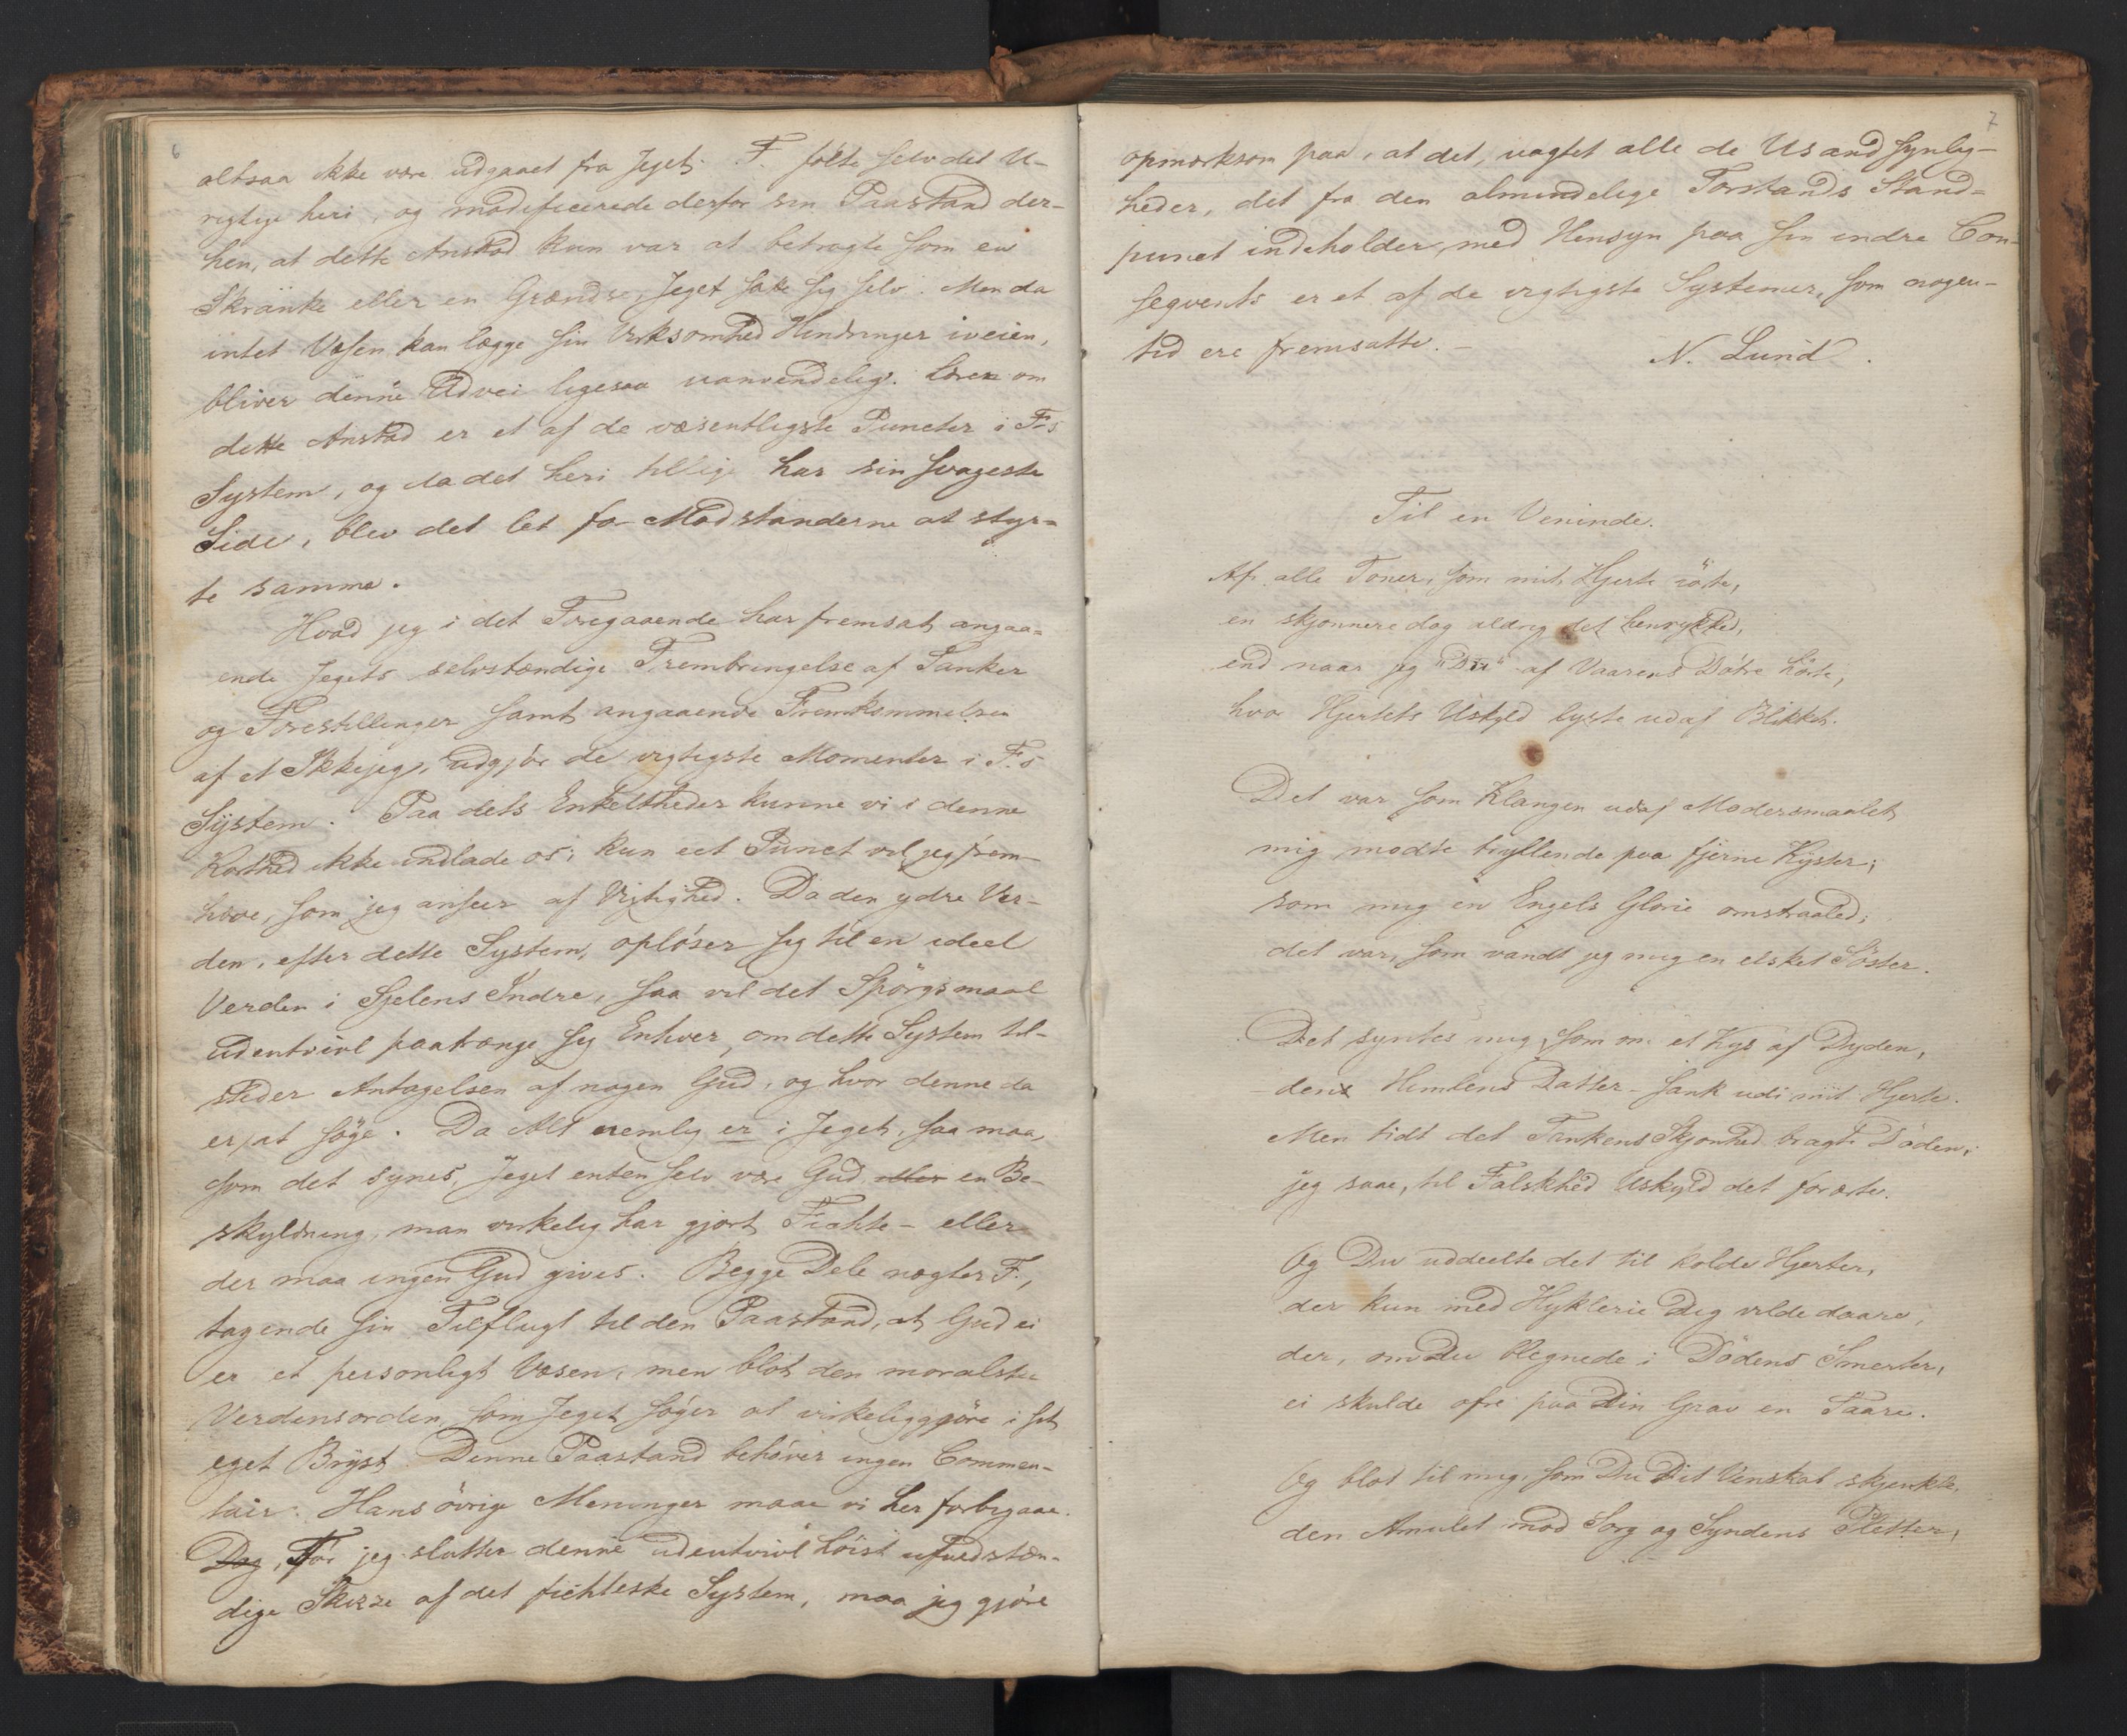 6
altsaa ikke være udgaaet fra Jeget. F. følte selv det U-
rigtige heri, og modificerede derfor sin Paastand der-
hen, at dette Anstød kun var at betragte som en
Skranke eller en Grændse, Jeget satte sig selv. Men da
intet Væsen kan lægge sin Virksomhed Hindringer iveien,
bliver denne Udvei ligesaa uanvendelig. Læren om
dette Anstød er et af de væsentligste Puncter i F's
System, og da det heri tillige har sin svageste
Side, blev det let for Modstanderne at styr-
te samme.
Hvad jeg i det Foregaaende har fremsat angaa-
ende Jegets selvstændige Frembringelse af Tanker
og Forestillinger samt angaaende Fremkommelsen
af et Ikkejeg, udgjør de vigtigste Momenter i F.s
System. Paa dets Enkeltheder kunne vi i denne
Korthed ikke indlade os; kun eet Punct vil jeg frem-
hæve, som jeg anseer af Vigtighed. Da den ydre Ver-
den, efter dette System, opløser sig til en ideel
Verden i Sjelens Indre, saa vil det Spørgsmaal
udentvivl paatrænge sig Enhver, om dette System til-
steder Antagelsen af nogen Gud, og hvor denne da
er at søge. Da Alt nemlig er i Jeget, saa maa,
som det synes, Jeget enten selv være Gud eller en Be-
skyldning, man virkelig har gjort Fichte – eller
der maa ingen Gud gives. Begge Dele nægter F.,
tagende sin Tilflugt til den Paastand, at Gud ei
er et personligt Væsen, men blot den moralske
Verdensorden, som Jeget søger at virkeliggjøre i sit
eget Bryst. Denne Paastand behøver ingen Commen-
tair. Hans øvrige Meninger maae vi her forbigaae.
Dog, Før jeg slutter denne udentvivl høist ufuldstæn-
dige Skizze af det fichteske System, maa jeg gjøre
7
opmærksom paa, at det, uagtet alle de Usandsynlig-
heder, det fra den almindelige Forstands Stand-
punct indeholder, med Hensyn paa sin indre Con-
seqvents er et af de vigtigste Systemer, som nogen-
tid ere fremsatte. –
N. Lund.
Til en Veninde.
Af alle Toner, som mit Hjerte rørte,
en skjønnere dog aldrig det henrykked,
end naar jeg "Du" af Vaarens Døtre hørte,
hvor Hjertets Uskyld lyste ud af Blikket.
Det var som Klangen udaf Modersmaalet
mig mødte tryllende paa fjerne Kyster;
som mig en Engels Glorie omstraaled;
det var, som vandt jeg mig en elsket Søster.
Det syntes mig, som om et Kys af Dyden,
den Himlens Datter – sank udi mit Hjerte.
Men tidt det Tankens Skjønhed bragte Døden;
jeg saae, til Falskhed Uskyld det forærte.
Og Du uddeelte det til kolde Hjerter,
der kun med Hyklerie Dig vilde daare,
der, om Du blegnede i Dødens Smerter,
ei skulde ofre paa Din Grav en Taare.
Og blot til mig, som Du Dit Venskab skjenkte,
den Amulet mod Sorg og Syndens Pletter,